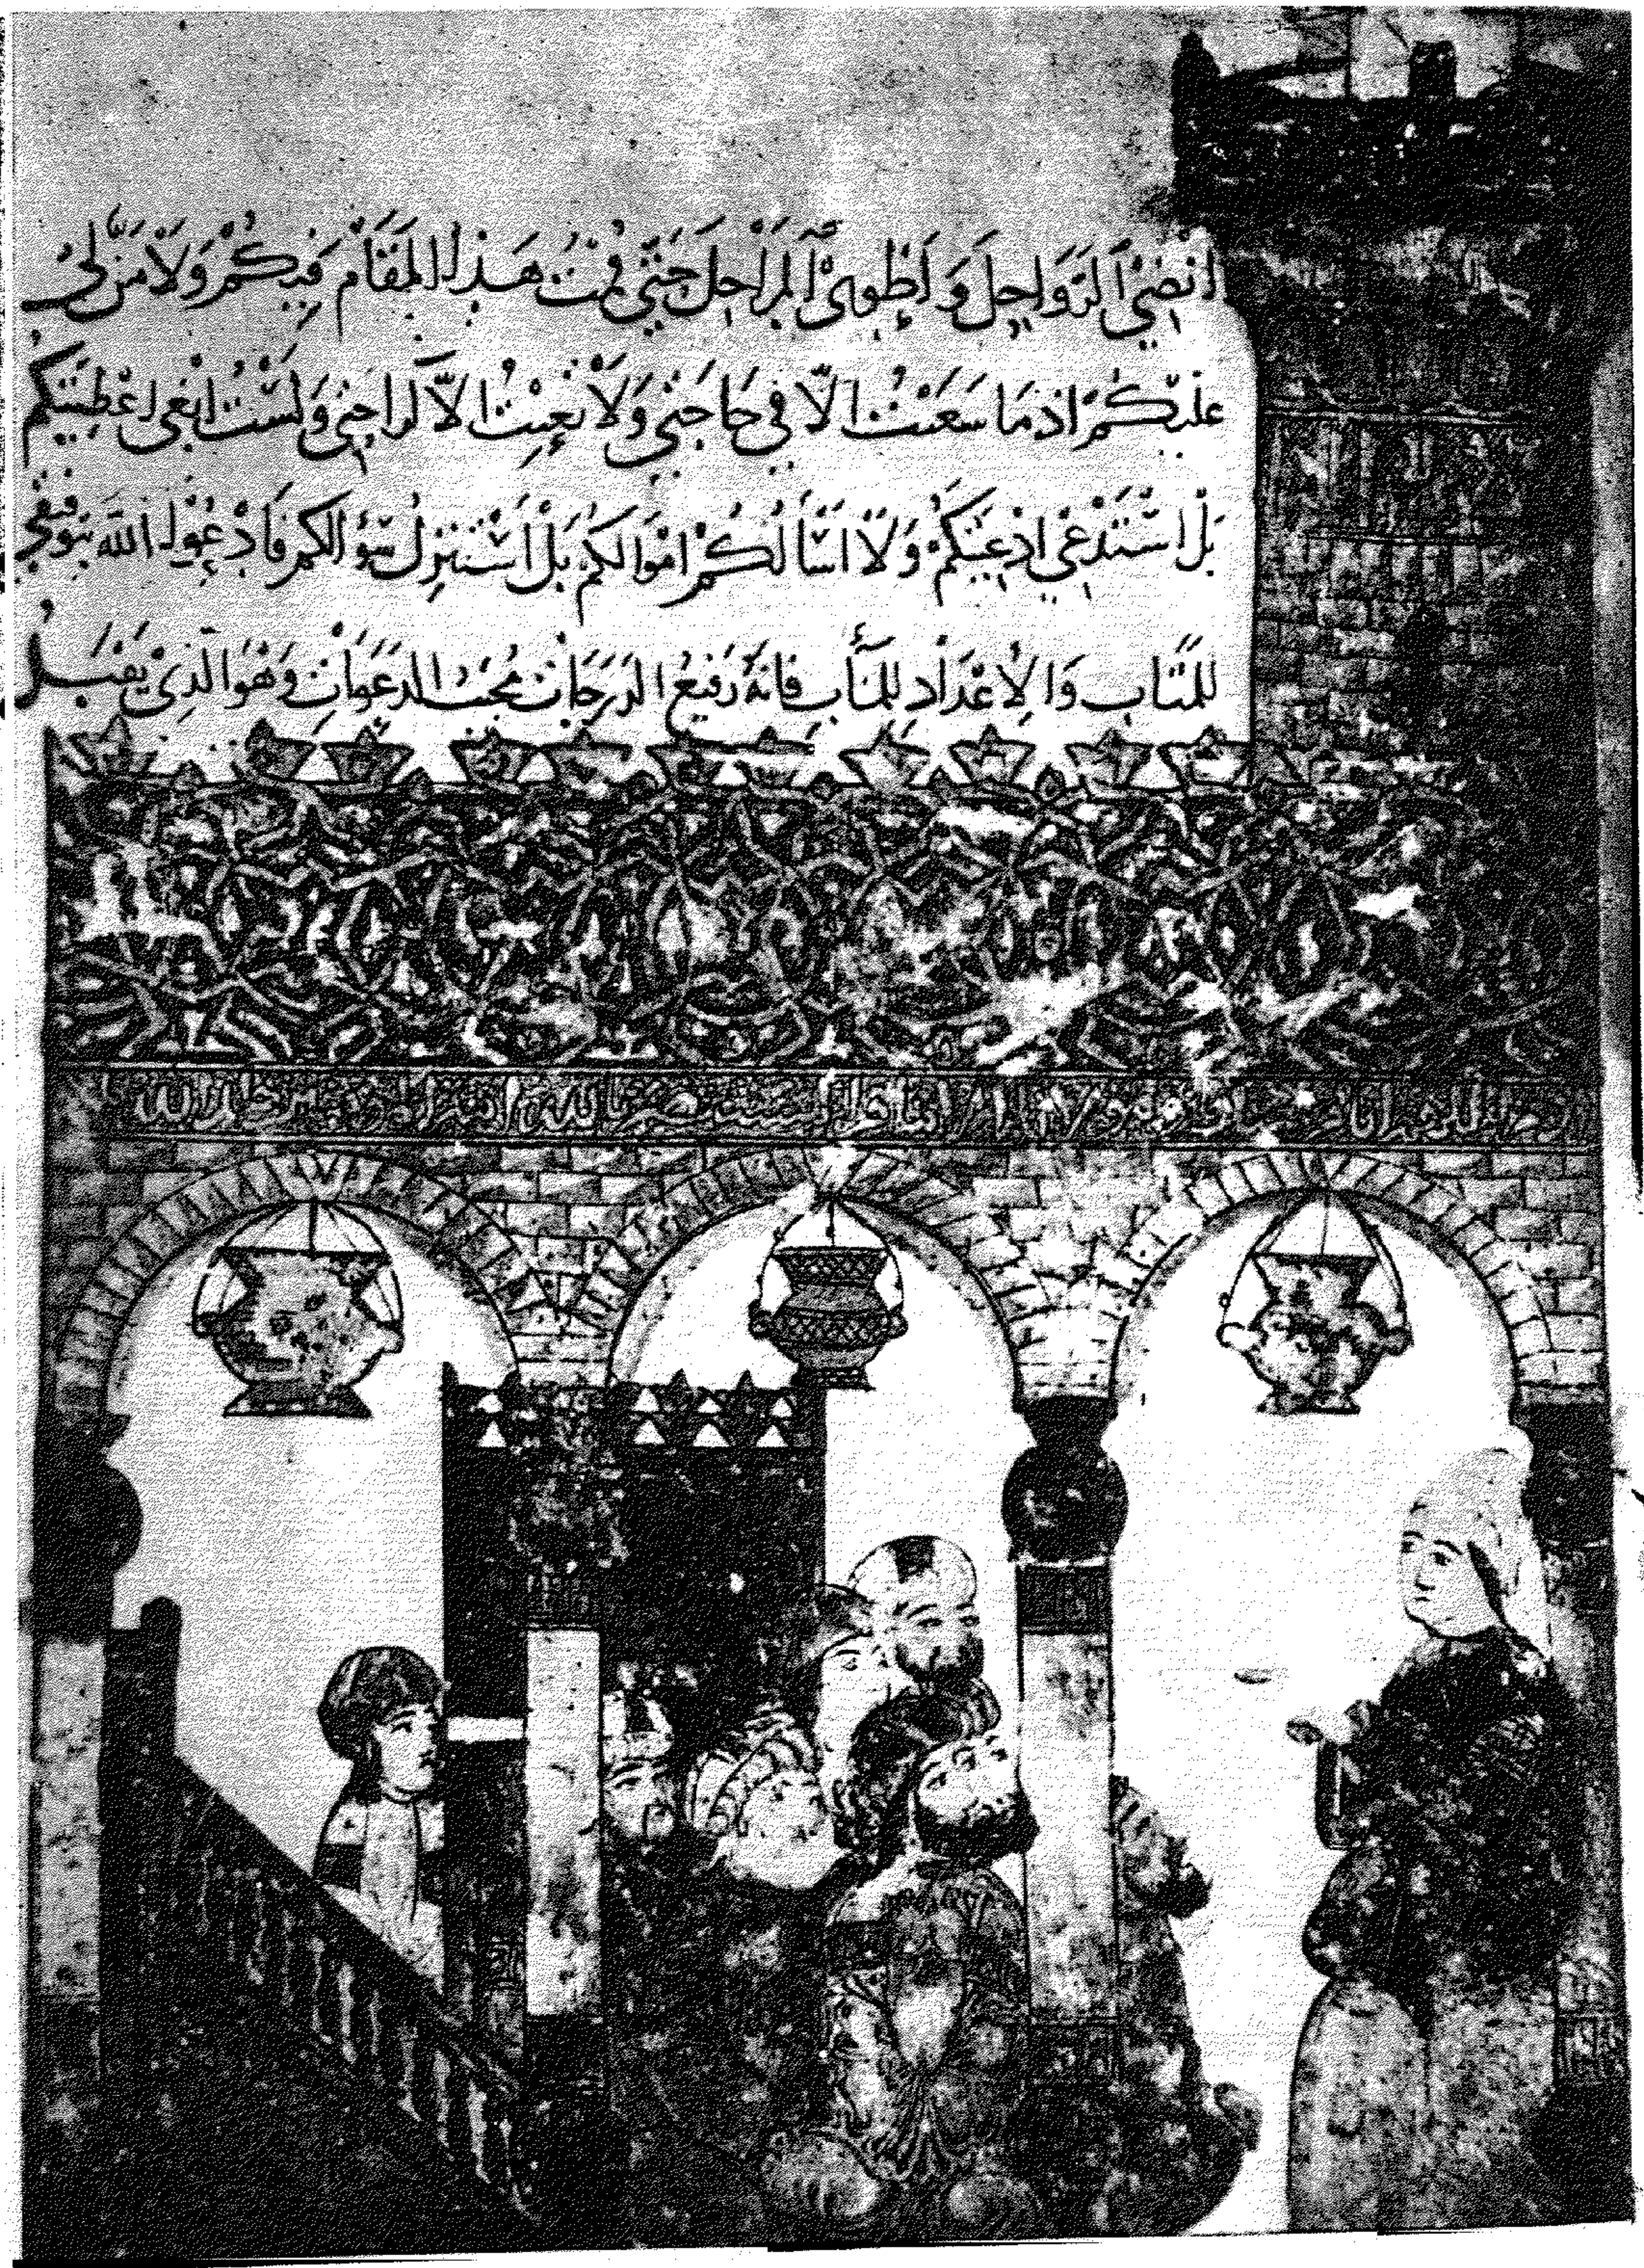 اُنْضِي الرَّوَاحِلَ وَاَطْوِي الْمَرَاحِلَ حَتَّى قُمْتُ هَذَا الْمَقَامَ فِيكُمْ وَلَا مَنَّ لِي
عَلَيْكُمْ اِذْ مَا سَعَيْتُ اِلَّا فِي حَاجَتِي وَلَا تَعِبْتُ اِلَّا لِرَاحَتِي وَلَسْتُ اَبْغِي اَعْطِيَتَكُمْ
بَلْ اَسْتَدْعِي اَدْعِيَتَكُمْ وَلَا اَسْاَلُكُمْ اَمْوَالَكُمْ بَلْ اَسْتَنْزِلُ سُؤَالَكُمْ فَادْعُوا اللهَ بِتَوْفِيقِي
لِلْمَتَابِ وَالْاِعْدَادِ لِلْمَآبِ فَاِنَّهُ رَفِيعُ الدَّرَجَاتِ مُجِيبُ الدَّعَوَاتِ وَهُوَ الَّذِي يَقْبَلُ
المستنصر بالله امير